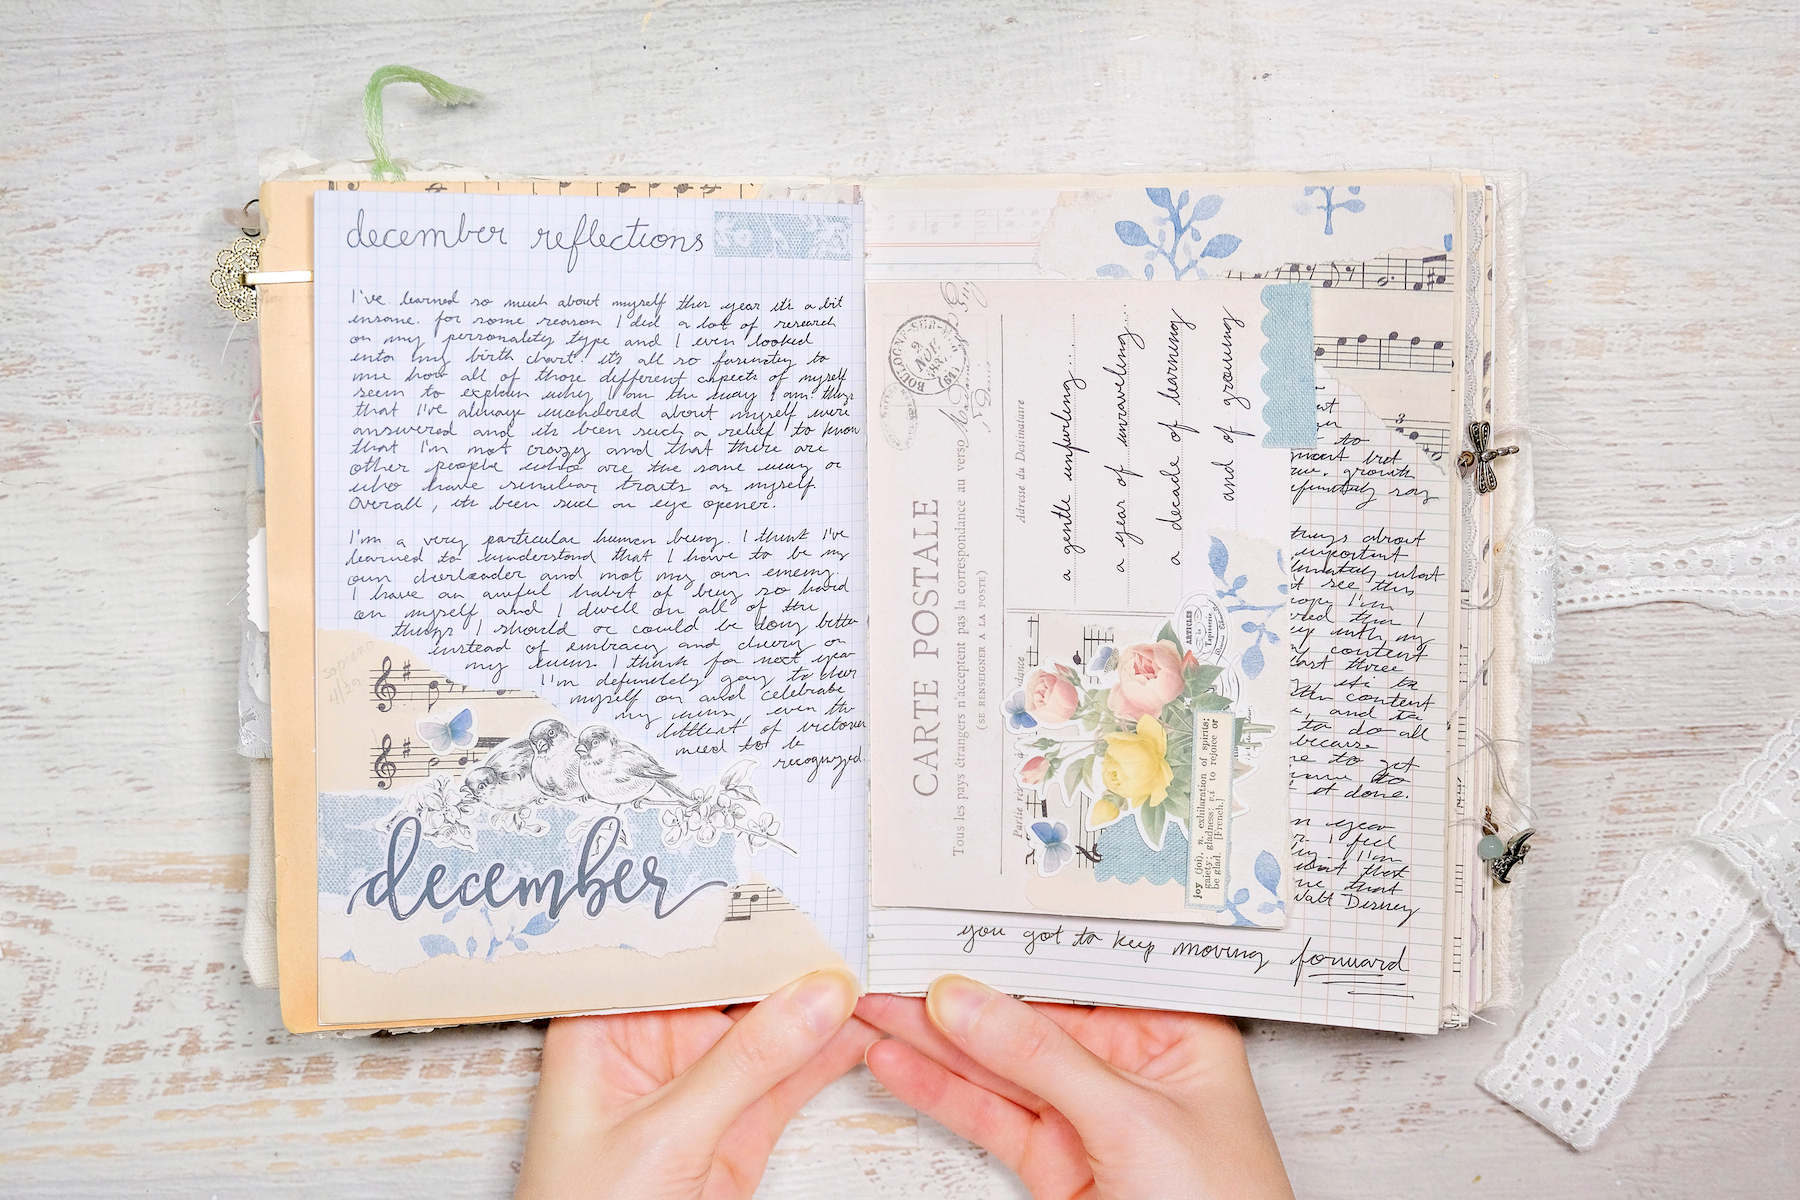 december reflections
I've learned so much about myself this year it's a bit
insane. for some reason I did a lot of research
on my personality type and I even looked
into my birth chart. it's all so
me how all of those different aspects of myself
seem to explain why I am the way I am. things
that I've always wondered about myself were
answered and its been such a relief to know
that I'm not crazy and that there are
other people who are the same way or
who have similar traits as myself.
Overall, its been such an eye opener.
I'm a very particular human being. I think I've
learned to understand that I have to be my
own cheerleader and not my own enemy.
I have an awful habit of being so hard
on myself and I dwell on all of the
things I should or could be doing better
instead of embracing and cheering on
my wins. I think for next year
I'm definitely going to cheer
myself on and celebrate
my wins, even the
littlest of victories
need to be
recognized.
soprano
4/29
december
CARTE POSTALE
Tous les pays étrangers n'acceptent pas la correspondance au verso
(SE RENSEIGNER A LA POSTE)
Adresse du Destinataire
BOULOGNE-SUR-
9
NOV.
a gentle unfurling...
a year of unraveling...
a decade of learning
and of growing
ARTICLES
joy (joi), n. exhilaration of spirits;
gaiety; gladness; v.i. to rejoice or
be glad. [French.]
3
to
but
growth
say
things about
important
what
t see this
I'm
I
with my
content
last three
content
and
to do all
because
to get
to
it done.
year
I feel
I'm
that
that
Walt Disney
you got to keep moving forward